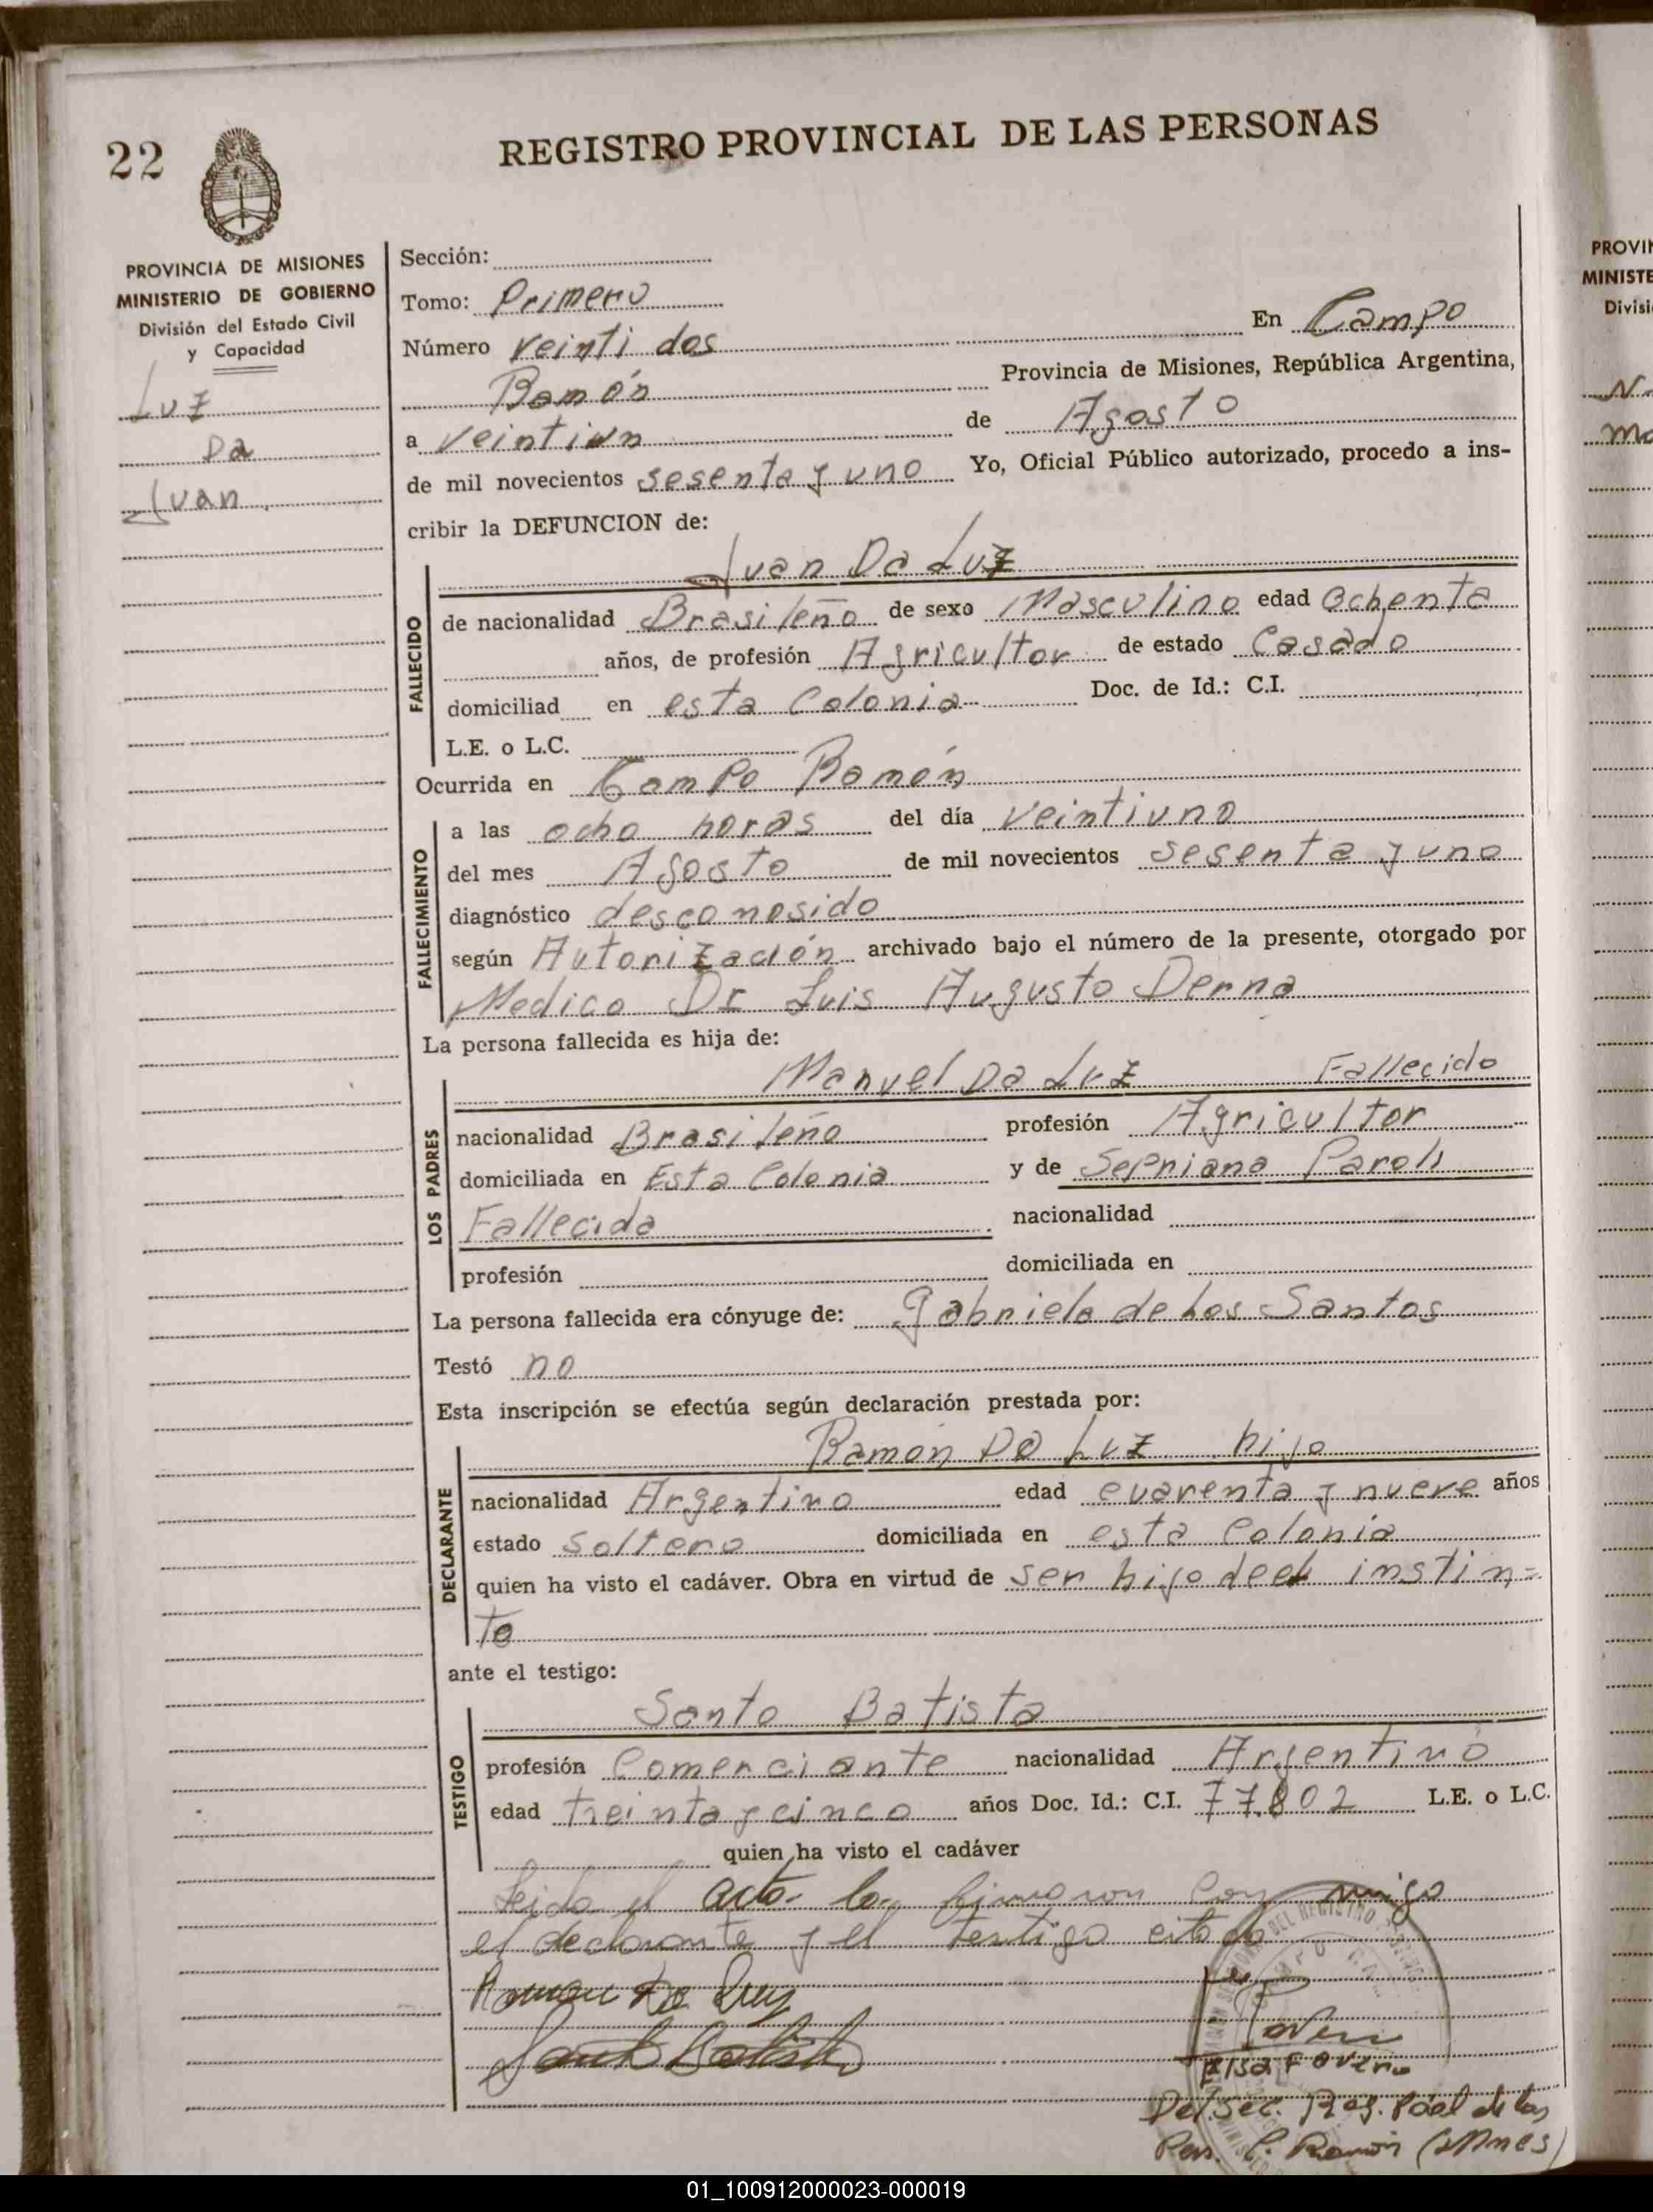 22
REGISTRO PROVINCIAL DE LAS PERSONAS
PROVINCIA DE MISIONES
MINISTERIO DE GOBIERNO
División del Estado Civil
y Capacidad
Luz
Da
Juan
Sección:
Tomo: Primero
Número Veinti dos En Campo
Ramón Provincia de Misiones, República Argentina,
a Veintiun de Agosto
de mil novecientos sesenta y uno Yo, Oficial Público autorizado, procedo a ins-
cribir la DEFUNCION de:
Juan Da Luz
FALLECIDO
de nacionalidad Brasileño de sexo Masculino edad Ochenta
años, de profesión Agricultor de estado Casado
domiciliad en esta Colonia Doc. de Id.: C.I.
L.E. o L.C.
Ocurrida en Campo Ramón
FALLECIMIENTO
a las ocho horas del día Veintiuno
del mes Agosto de mil novecientos sesenta y uno
diagnóstico desconosido
según Autorización archivado bajo el número de la presente, otorgado por
Medico Dr Luis Augusto Derna
La persona fallecida es hija de:
Manuel Da Luz Fallecido
LOS PADRES
nacionalidad Brasileño profesión Agricultor
domiciliada en Esta Colonia y de Sepriana Paroli
Fallecida nacionalidad
profesión domiciliada en
La persona fallecida era cónyuge de: Gabriela de Los Santos
Testó no
Esta inscripción se efectúa según declaración prestada por:
Ramon Da Luz hijo
DECLARANTE
nacionalidad Argentino edad cuarenta y nueve años
estado Soltero domiciliada en esta Colonia
quien ha visto el cadáver. Obra en virtud de ser hijo deel imstin=
to
ante el testigo:
Santo Batista
TESTIGO
profesión Comerciante nacionalidad Argentino
edad treinta y cinco años Doc. Id.: C.I. 77.802 L.E. o L.C.
quien ha visto el cadáver
Leida el acta la firmaron con migo
el declarante y el testigo citado
Ramon Da Luz
Santo Batista
Elsa F
Del Sec. Reg. Pcial de las
Per. C. Ramón (Mnes)
PROVIN
MINISTE
Divisi
01_100912000023-000019